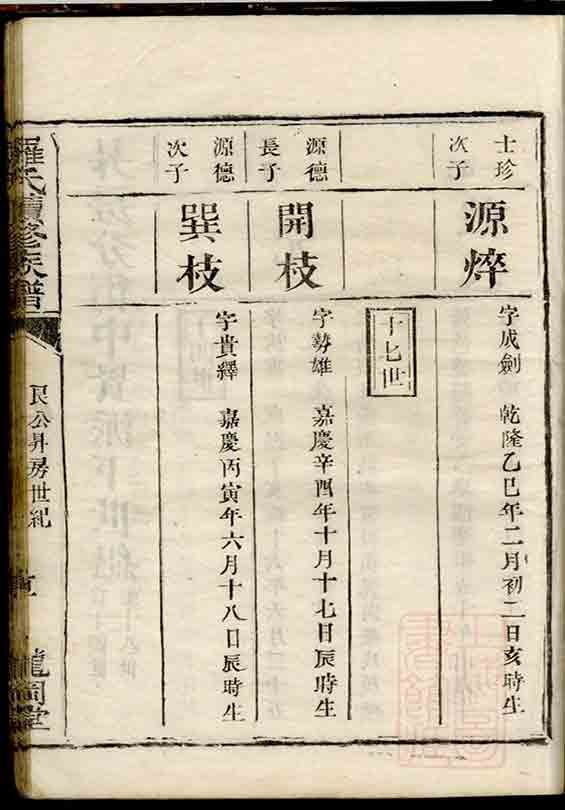 士珍
次子
源焠
字成劍 乾隆乙巳年二月初二日亥時生
十七世
源德
長子
開枝
字勢雄 嘉慶辛酉年十月十七日辰時生
源德
次子
巽枝
字貴繹 嘉慶丙寅年六月十八日辰時生
羅氏續修族譜
民公昇房世紀